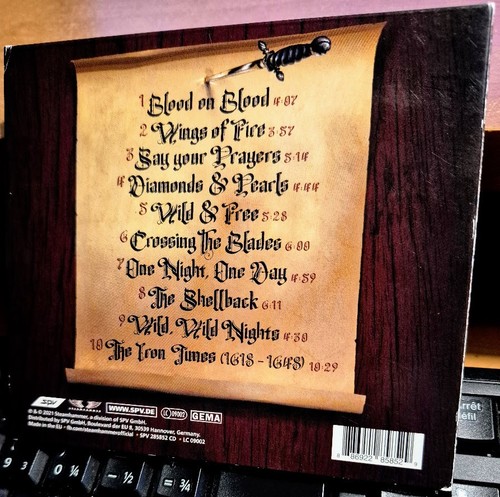 1 Blood on Blood 4:07
2 Wings of Fire 3:57
3 Say your Prayers 5:14
4 Diamonds & Pearls 4:44
5 Wild & Free 5:28
6 Crossing The Blades 6:00
7 One Night, One Day 4:59
8 The Shellback 6:11
9 Wild, Wild Nights 4:30
10 The Iron Times (1618 - 1648) 10:29
SPV WWW.SPV.DE LC 09002 GEMA
℗ & © 2021 Steamhammer, a division of SPV GmbH.
Distributed by SPV GmbH, Boulevard der EU 8, 30539 Hannover, Germany.
Made in the EU • fb.com/steamhammerofficial • SPV 285852 CD • LC 09002
8 86922 85852
9 3 0 ¼ – ½ = ¾